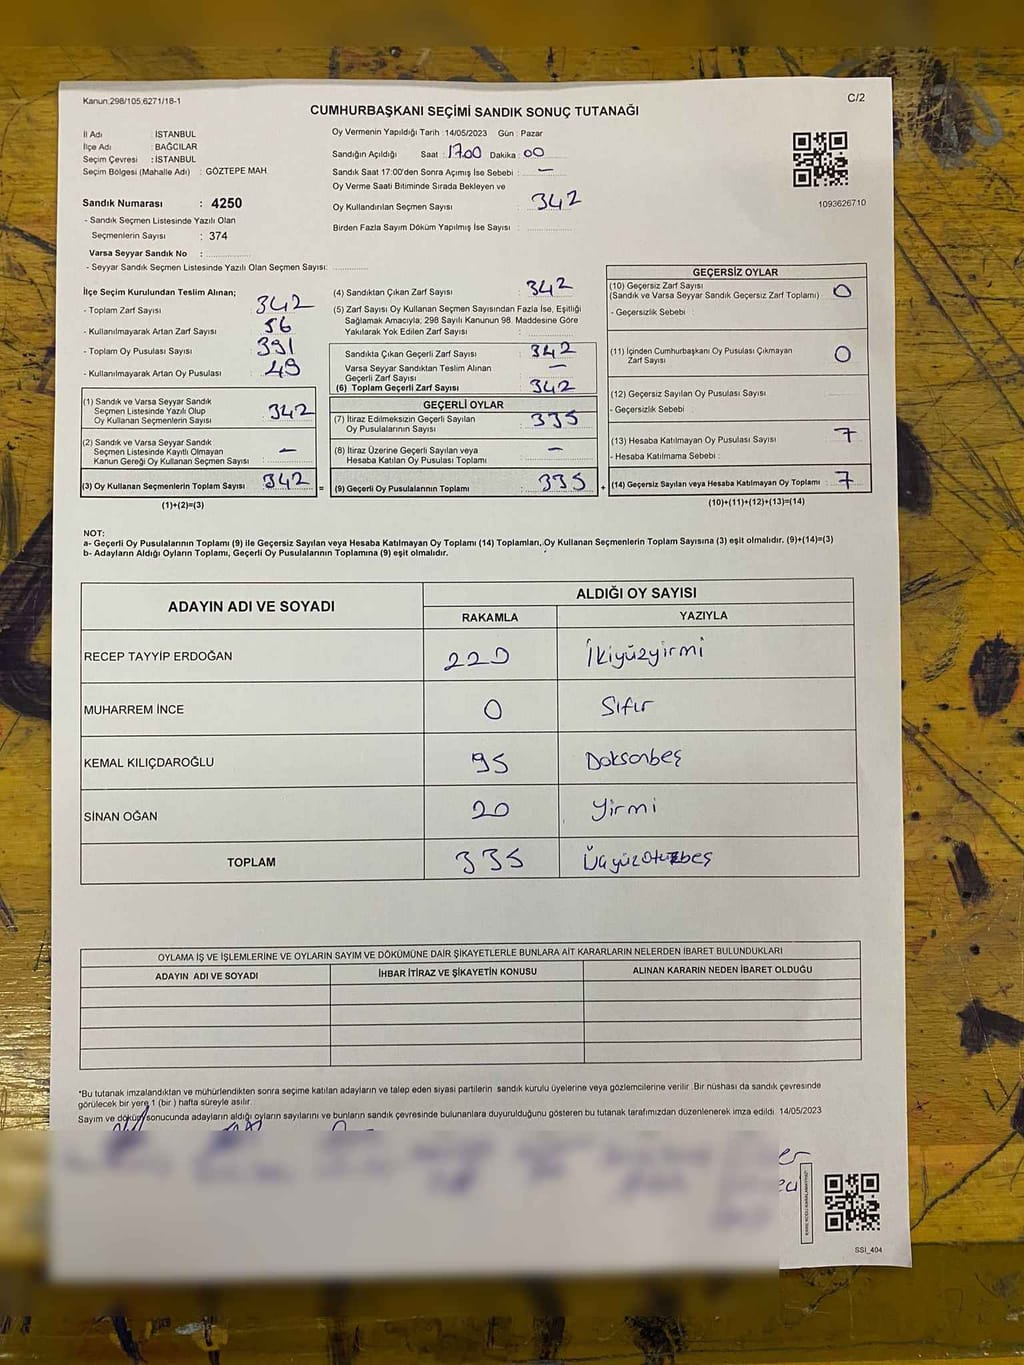 Kanun:298/105,6271/18-1
C/2
CUMHURBAŞKANI SEÇİMİ SANDIK SONUÇ TUTANAĞI
İl Adı : İSTANBUL
İlçe Adı : BAĞCILAR
Seçim Çevresi : İSTANBUL
Seçim Bölgesi (Mahalle Adı) : GÖZTEPE MAH
Sandık Numarası : 4250
- Sandık Seçmen Listesinde Yazılı Olan
Seçmenlerin Sayısı : 374
Varsa Seyyar Sandık No : ................
- Seyyar Sandık Seçmen Listesinde Yazılı Olan Seçmen Sayısı: ............
Oy Vermenin Yapıldığı Tarih :14/05/2023 Gün : Pazar
Sandığın Açıldığı Saat :17.00 Dakika : 00
Sandık Saat 17:00'den Sonra Açımış İse Sebebi : —
Oy Verme Saati Bitiminde Sırada Bekleyen ve
Oy Kullandırılan Seçmen Sayısı : 342
Birden Fazla Sayım Döküm Yapılmış İse Sayısı : ............
1093626710
İlçe Seçim Kurulundan Teslim Alınan;
- Toplam Zarf Sayısı : 342
- Kullanılmayarak Artan Zarf Sayısı : 56
- Toplam Oy Pusulası Sayısı : 391
- Kullanılmayarak Artan Oy Pusulası : 49
(1) Sandık ve Varsa Seyyar Sandık
Seçmen Listesinde Yazılı Olup
Oy Kullanan Seçmenlerin Sayısı : 342
(2) Sandık ve Varsa Seyyar Sandık
Seçmen Listesinde Kayıtlı Olmayan
Kanun Gereği Oy Kullanan Seçmen Sayısı : —
(3) Oy Kullanan Seçmenlerin Toplam Sayısı : 342
(1)+(2)=(3)
=
(4) Sandıktan Çıkan Zarf Sayısı : 342
(5) Zarf Sayısı Oy Kullanan Seçmen Sayısından Fazla İse, Eşitliği
Sağlamak Amacıyla, 298 Sayılı Kanunun 98. Maddesine Göre
Yakılarak Yok Edilen Zarf Sayısı : ............
Sandıkta Çıkan Geçerli Zarf Sayısı : 342
Varsa Seyyar Sandıktan Teslim Alınan
Geçerli Zarf Sayısı : —
(6) Toplam Geçerli Zarf Sayısı : 342
GEÇERLİ OYLAR
(7) İtiraz Edilmeksizin Geçerli Sayılan
Oy Pusulalarının Sayısı : 335
(8) İtiraz Üzerine Geçerli Sayılan veya
Hesaba Katılan Oy Pusulası Toplamı : —
(9) Geçerli Oy Pusulalarının Toplamı : 335
+
GEÇERSİZ OYLAR
(10) Geçersiz Zarf Sayısı
(Sandık ve Varsa Seyyar Sandık Geçersiz Zarf Toplamı) : 0
- Geçersizlik Sebebi :
(11) İçinden Cumhurbaşkanı Oy Pusulası Çıkmayan
Zarf Sayısı : 0
(12) Geçersiz Sayılan Oy Pusulası Sayısı :
- Geçersizlik Sebebi :
(13) Hesaba Katılmayan Oy Pusulası Sayısı : 7
- Hesaba Katılmama Sebebi :
(14) Geçersiz Sayılan veya Hesaba Katılmayan Oy Toplamı : 7
(10)+(11)+(12)+(13)=(14)
NOT:
a- Geçerli Oy Pusulalarının Toplamı (9) ile Geçersiz Sayılan veya Hesaba Katılmayan Oy Toplamı (14) Toplamları, Oy Kullanan Seçmenlerin Toplam Sayısına (3) eşit olmalıdır. (9)+(14)=(3)
b- Adayların Aldığı Oyların Toplamı, Geçerli Oy Pusulalarının Toplamına (9) eşit olmalıdır.
ADAYIN ADI VE SOYADI
ALDIĞI OY SAYISI
RAKAMLA YAZIYLA
RECEP TAYYİP ERDOĞAN 220 İkiyüzyirmi
MUHARREM İNCE 0 Sıfır
KEMAL KILIÇDAROĞLU 95 Doksanbeş
SİNAN OĞAN 20 Yirmi
TOPLAM 335 Üçyüzotuzbeş
OYLAMA İŞ VE İŞLEMLERİNE VE OYLARIN SAYIM VE DÖKÜMÜNE DAİR ŞİKAYETLERLE BUNLARA AİT KARARLARIN NELERDEN İBARET BULUNDUKLARI
ADAYIN ADI VE SOYADI İHBAR İTİRAZ VE ŞİKAYETİN KONUSU ALINAN KARARIN NEDEN İBARET OLDUĞU
*Bu tutanak imzalandıktan ve mühürlendikten sonra seçime katılan adayların ve talep eden siyasi partilerin sandık kurulu üyelerine veya gözlemcilerine verilir .Bir nüshası da sandık çevresinde
görülecek bir yere 1 (bir ) hafta süreyle asılır.
Sayım ve döküm sonucunda adayların aldığı oyların sayılarını ve bunların sandık çevresinde bulunanlara duyurulduğunu gösteren bu tutanak tarafımızdan düzenlenerek imza edildi. 14/05/2023
SSI_404